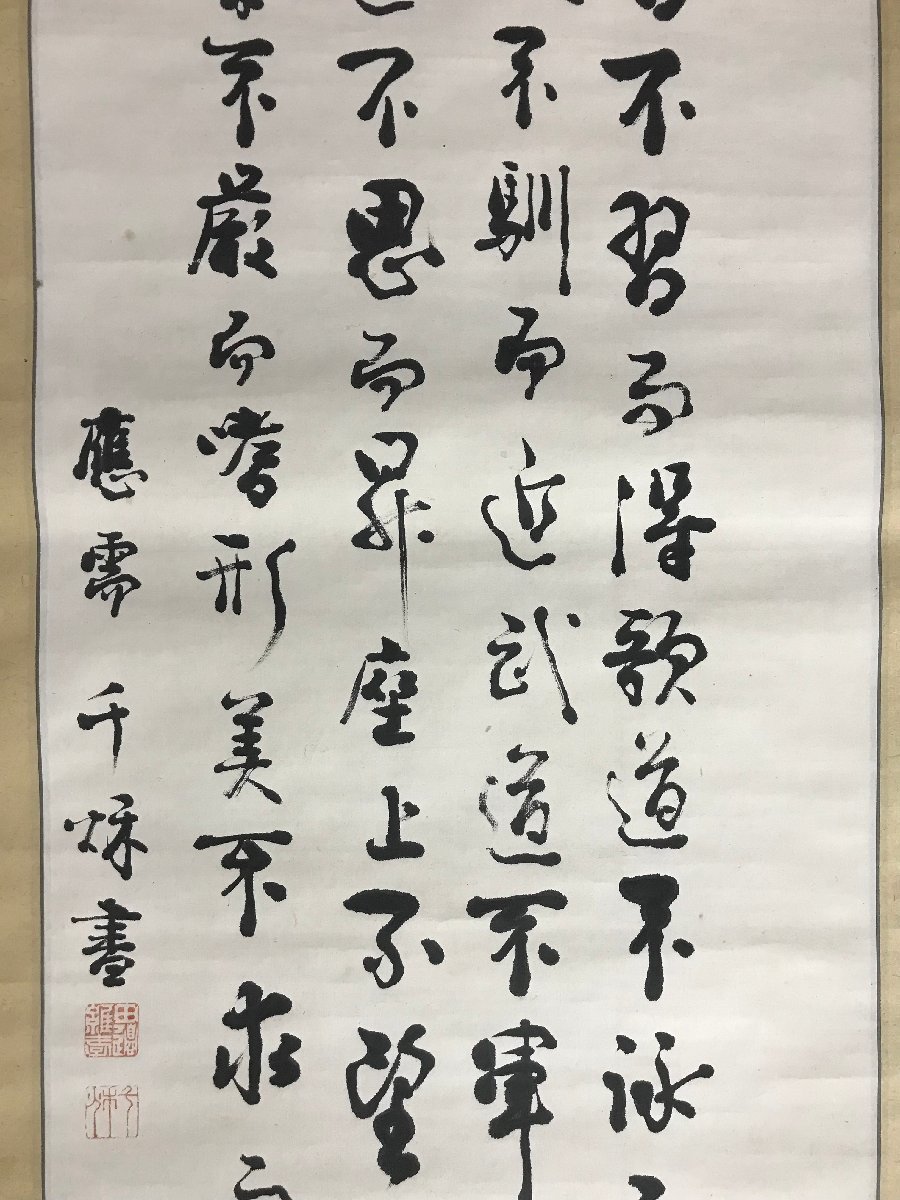 不習而得歌道不詠
不馴而近武道不軍
不思而昇座上不望
不嚴而嗜形美不求
應需 千秌書